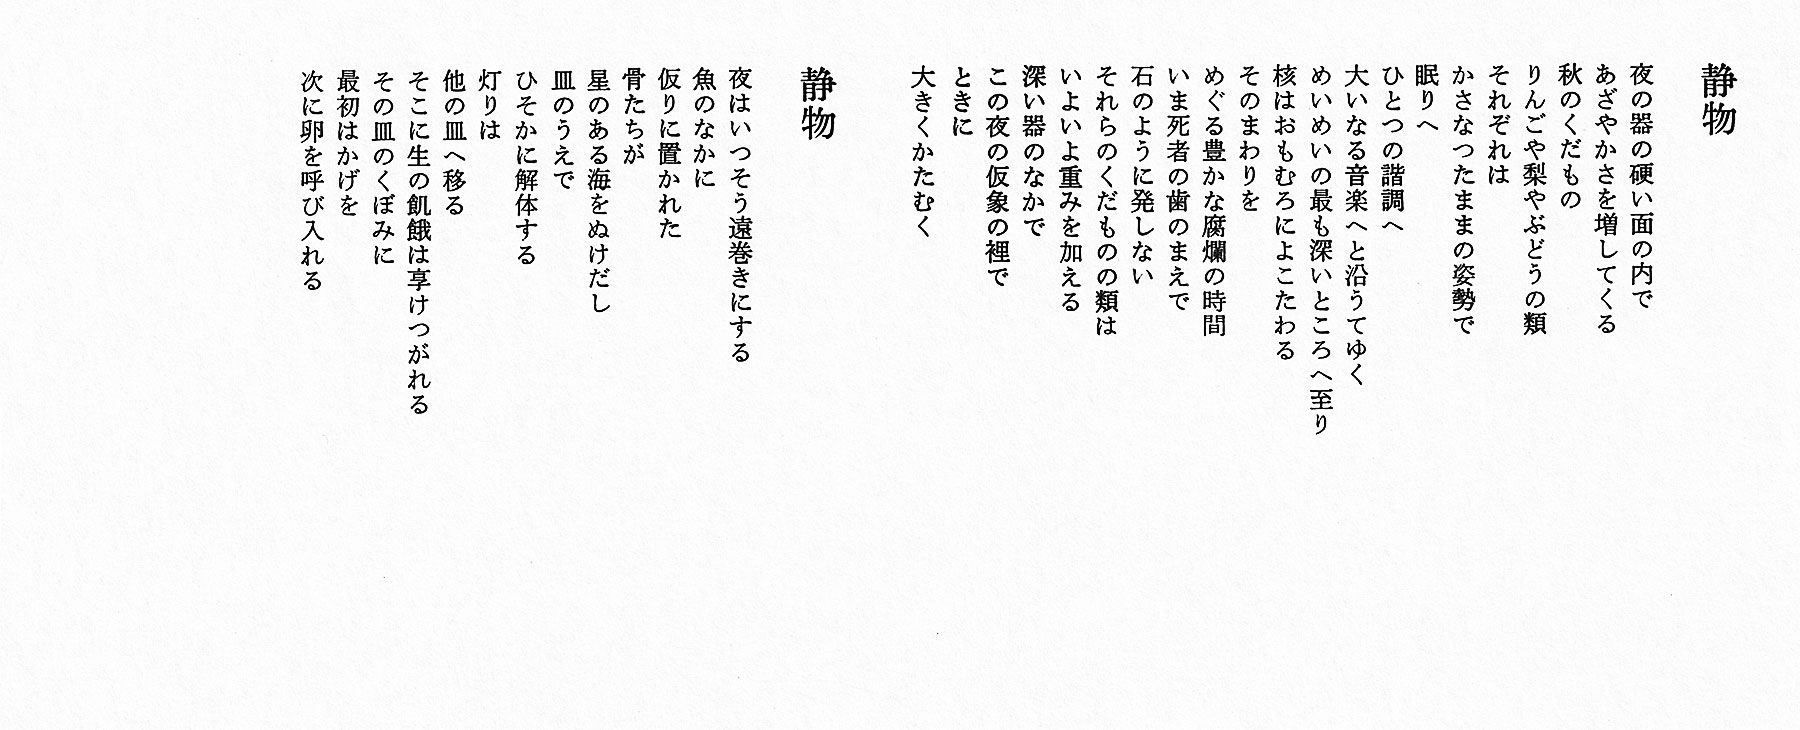 静物
夜の器の硬い面の内で
あざやかさを増してくる
秋のくだもの
りんごや梨やぶどうの類
それぞれは
かさなつたままの姿勢で
眠りへ
ひとつの諧調へ
大いなる音楽へと沿うてゆく
めいめいの最も深いところへ至り
核はおもむろによこたわる
そのまわりを
めぐる豊かな腐爛の時間
いま死者の歯のまえで
石のように発しない
それらのくだものの類は
いよいよ重みを加える
深い器のなかで
この夜の仮象の裡で
ときに
大きくかたむく
静物
夜はいつそう遠巻きにする
魚のなかに
仮りに置かれた
骨たちが
星のある海をぬけだし
皿のうえで
ひそかに解体する
灯りは
他の皿へ移る
そこに生の飢餓は享けつがれる
その皿のくぼみに
最初はかげを
次に卵を呼び入れる